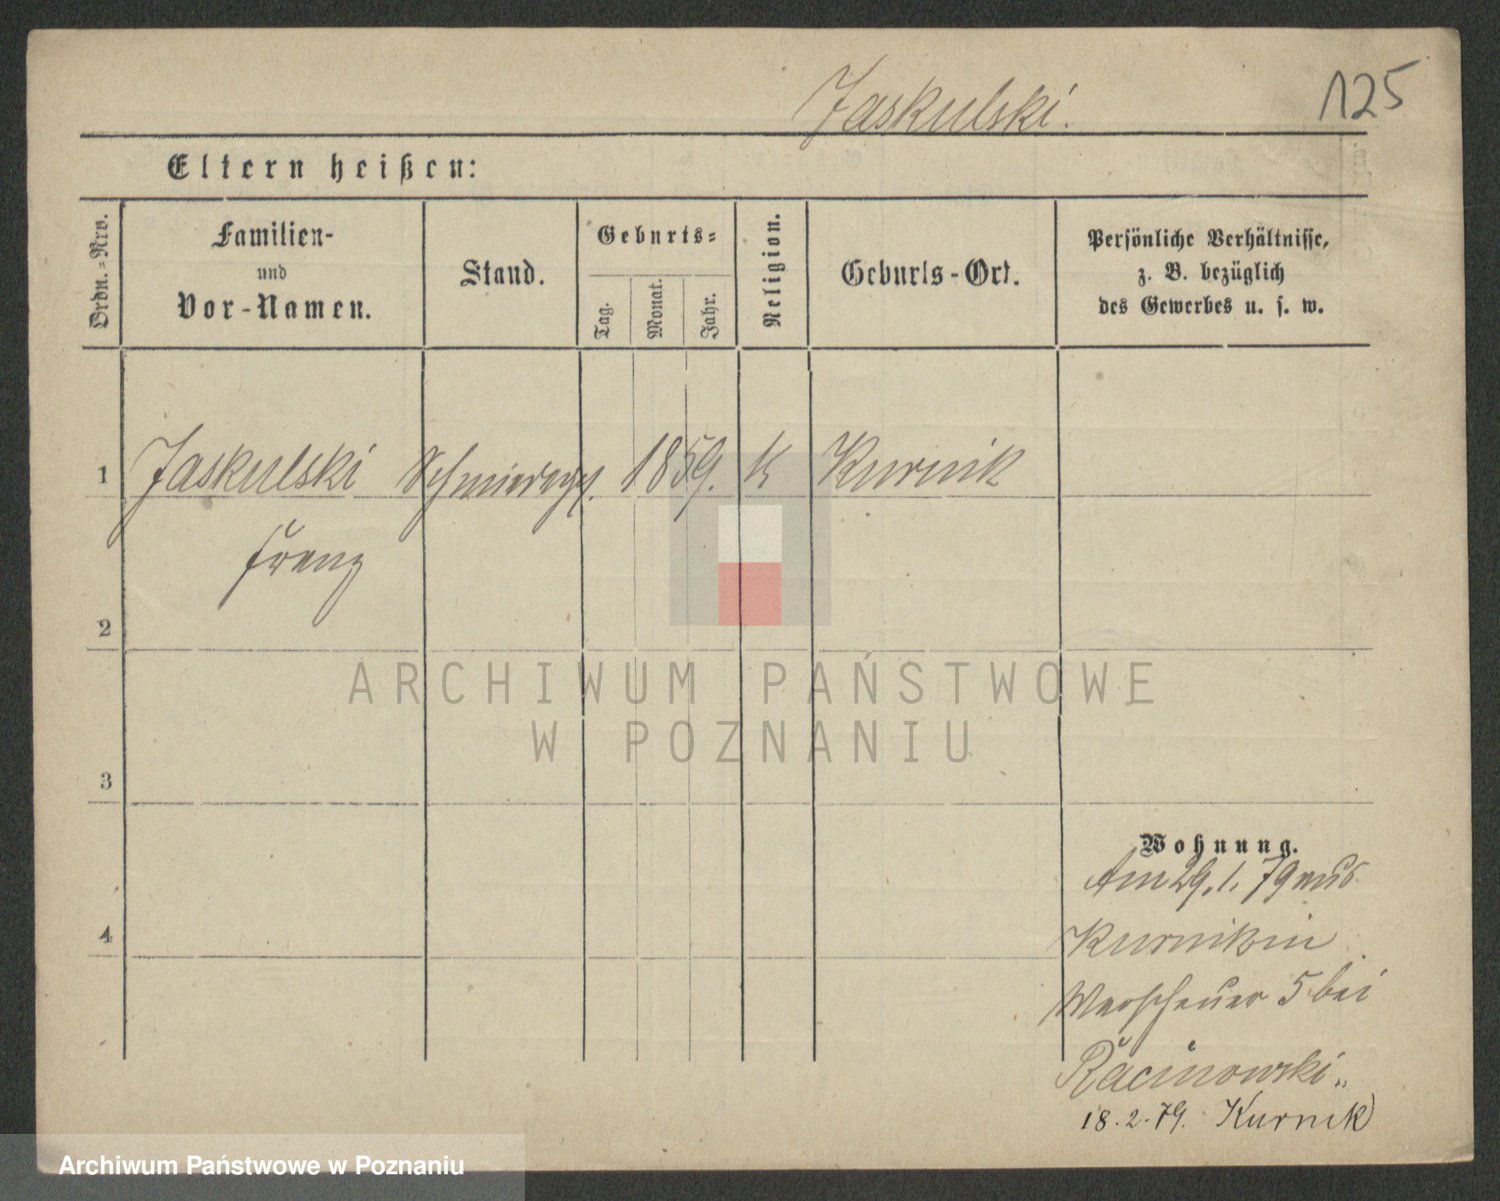 Jaskulski. 125
Eltern heißen:
Ordn.-Nro. Familien- und Vor-Namen. Stand. Geburts- Tag. Monat. Jahr. Religion. Geburts-Ort. Persönliche Verhältnisse, z. B. bezüglich des Gewerbes u. s. w.
1 Jaskulski Schmiedeges. 1859. K Kurnik
Franz
2
ARCHIWUM PAŃSTWOWE
W POZNANIU
3
Wohnung.
Am 29. 1. 79 aus
4 Kurnik in
Warschauer 5 bei
Racinowski.
18. 2. 79. Kurnik
Archiwum Państwowe w Poznaniu